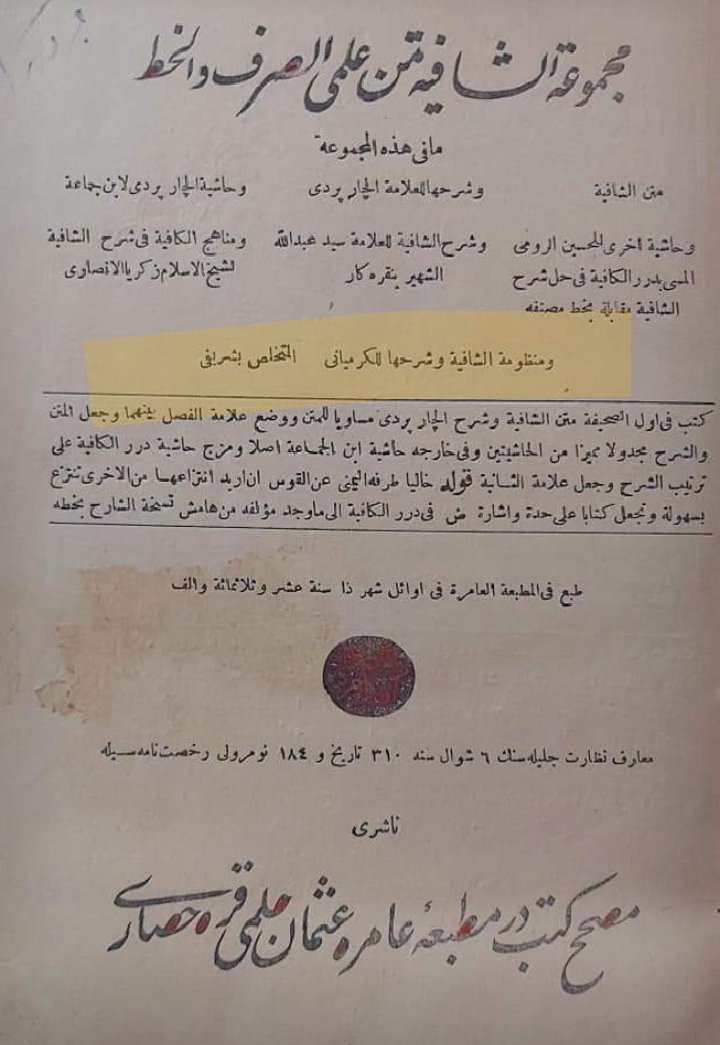 مجموعة الشافيه من علمى الصرف والخط
مافى هذه المجموعة
متن الشافية وشرحها للعلامة الجار پردى وحاشية الجار پردى لابن جماعة
وحاشية اخرى للمحسين الرومى وشرح الشافية للعلامة سيد عبدالله ومناهج الكافية فى شرح الشافية
المسمى بدرر الكافية فى حل شرح الشهير بنقره كار لشيخ الاسلام زكريا الانصارى
الشافية مقابلة بخط مصنفه
ومنظومة الشافية وشرحها للكرميانى المتخلص بشريفى
كتب فى اول الصحيفة متن الشافية وشرح الجار پردى مساويا للمتن ووضع علامة الفصل بينهما وجعل المتن
والشرح مجدولا مميزا من الحاشيتين وفى خارجه حاشية ابن الجماعة اصلا ومزج حاشية درر الكافية على
ترتيب الشرح وجعل علامة الثانية قوله خاليا طرفه اليمنى عن القوس ان اريد انتزاعها من الاخرى تنتزع
بسهولة وتجعل كتابا على حدة واشارة ض فى درر الكافية الى ماوجد مؤلفه من هامش نسخة الشارح بخطه
طبع فى المطبعة العامرة فى اوائل شهر ذا سنة عشر وثلاثمائة والف
معارف نظارت جليله سنك ٦ شوال سنه ٣١٠ تاريخ و ١٨٤ نومرولى رخصتنامه سيله
ناشرى
مصحح كتب در مطبعۀ عامره عثمان حلمى قره حصارى